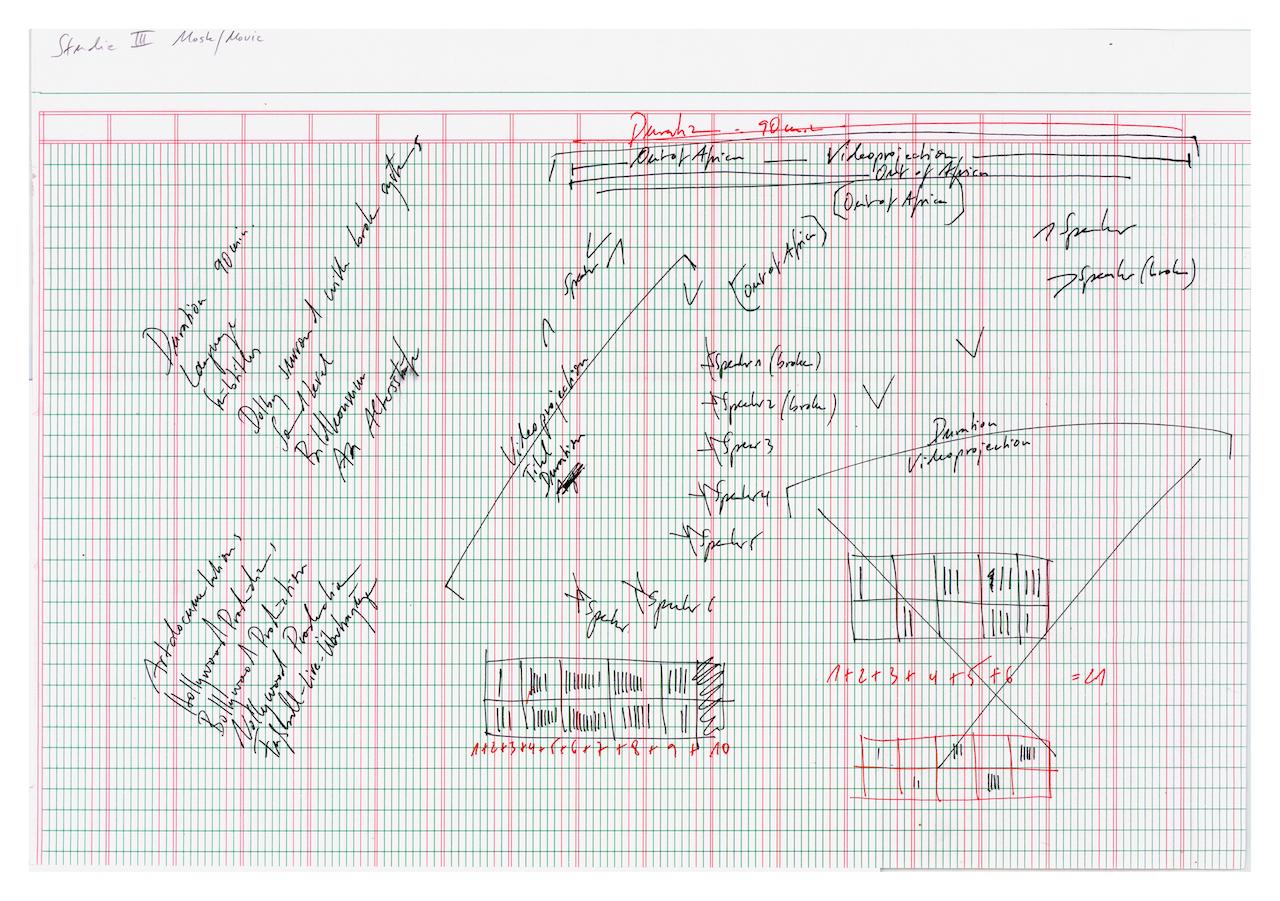 Studie III Mosk/Movie
Duration - 90 min
Out of Africa Videoprojection
Out of Africa
(Out of Africa)
1 Speaker
Speaker (broken)
(Out of Africa)
Speaker 1
Duration 90 min.
Language
Subtitles
Dolby surround with broken systems
Soundlevel
Bildkonsum
An Altersstufe
Videoprojection
Titel
Duration
Speaker 1 (broken)
Speaker 2 (broken)
Speaker 3
Speaker 4
Speaker 5
Speaker 6
Speaker
Duration
Videoprojection
Artdocumentation,
Hollywood Production,
Bollywood Production
Nollywood Production
Fußball-Live-Übertragung
1+2+3+4+5+6 = 21
1+2+3+4+5+6+7+8+9+10